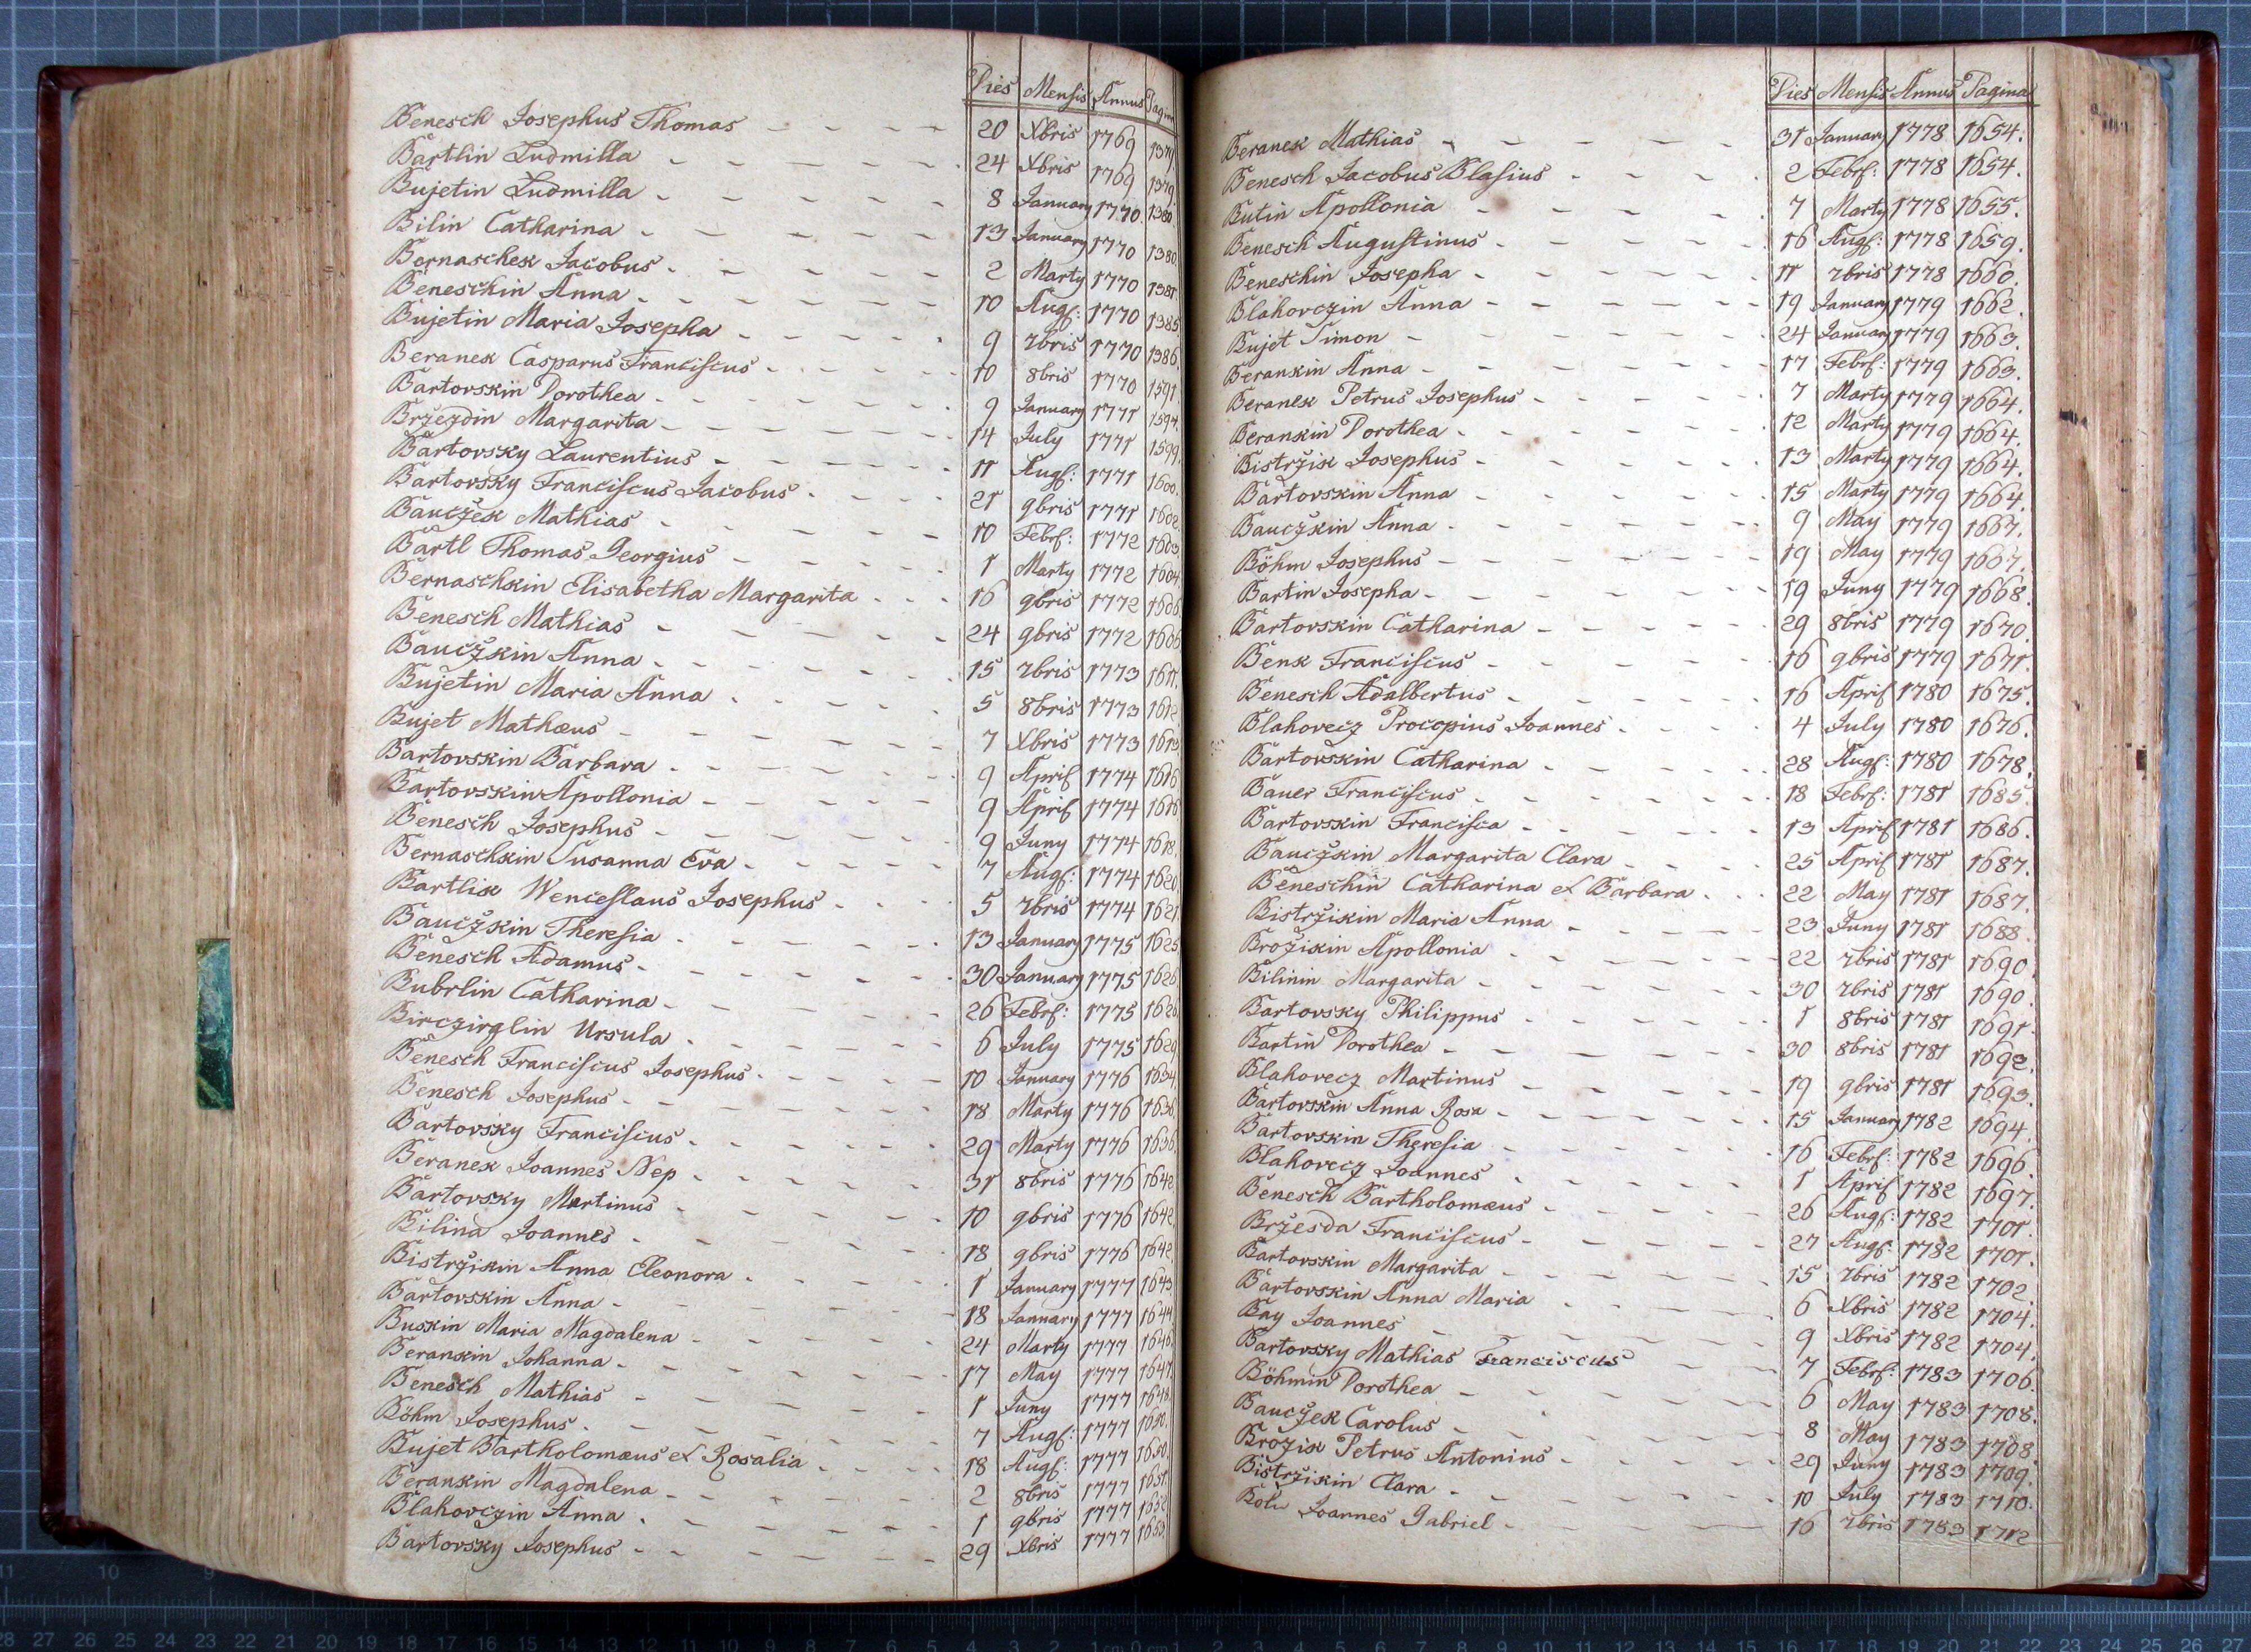 Dies Mensis Annus Pagina
Benesch Josephus Thomas - - - - 20 Xbris 1769 1379
Bartlin Ludmilla - - - - - 24 Xbris 1769 1379
Bujetin Ludmilla - - - - - 8 January 1770 1380
Bilin Catharina - - - - - 13 January 1770 1380.
Bernaschek Jacobus - - - - - 2 Marty 1770 1381.
Beneschin Anna - - - - - - 10 Augs: 1770 1385
Bujetin Maria Josepha - - - - 9 7bris 1770 1386.
Beranek Casparus Franciscus - - - - - 10 8bris 1770 1591.
Bartovskin Dorothea - - - - - - 9 January 1771 1594.
Brzezdin Margarita - - - - - - 14 July 1771 1599.
Bartovsky Laurentius - - - - - 11 Augs: 1771 1600.
Bartovsky Franciscus Jacobus - - - - 21 9bris 1771 1602.
Bauczek Mathias - - - - - - 10 Febr: 1772 1603.
Bartl Thomas Georgius - - - - - 1 Marty 1772 1604
Bernaschkin Elisabetha Margarita - - - 16 9bris 1772 1606
Benesch Mathias - - - - - - 24 9bris 1772 1606
Bauczkin Anna - - - - - - 15 7bris 1773 1611.
Bujetin Maria Anna - - - - - 5 8bris 1773 1612
Bujet Mathæus - - - - - - 7 Xbris 1773 1613
Bartovskin Barbara - - - - - - 9 April 1774 1616
Bartovskin Apollonia - - - - - 9 April 1774 1616
Benesch Josephus - - - - - - 9 Juny 1774 1618.
Bernaschkin Susanna Eva - - - - - 7 Augs: 1774 1620.
Bartlik Wenceslaus Josephus - - - - 5 7bris 1774 1621.
Bauczkin Theresia - - - - - - 13 January 1775 1625
Benesch Adamus - - - - - - 30 January 1775 1626
Bubrlin Catharina - - - - - - 26 Febr: 1775 1626.
Birczirglin Ursula - - - - - - 6 July 1775 1629
Benesch Franciscus Josephus - - - - - 10 January 1776 1634.
Benesch Josephus - - - - - - 18 Marty 1776 1636.
Bartovsky Franciscus - - - - - - 29 Marty 1776 1636.
Beranek Joannes Nep - - - - - - 31 8bris 1776 1642
Bartovsky Martinus - - - - - - 10 9bris 1776 1642.
Bilina Joannes - - - - - - 18 9bris 1776 1642
Bistrzikin Anna Eleonora - - - - - 1 January 1777 1643
Bartovskin Anna - - - - - - 18 January 1777 1644
Buskin Maria Magdalena - - - - - 24 Marty 1777 1646.
Berankin Johanna - - - - - - 17 May 1777 1647.
Benesch Mathias - - - - - - 1 Juny 1777 1648.
Böhm Josephus - - - - - - 7 Augs: 1777 1650.
Bujet Bartholomæus et Rosalia - - - - 18 Augs: 1777 1650.
Berankin Magdalena - - - - - - 2 8bris 1777 1651.
Blahovczin Anna - - - - - - 1 9bris 1777 1652
Bartovsky Josephus - - - - - - 29 Xbris 1777 1653
Dies Mensis Annus Pagina
Beranek Mathias - - - - - 31 January 1778 1654.
Benesch Jacobus Blasius - - - - 2 Febr: 1778 1654.
Butin Apollonia - - - - - - 7 Marty 1778 1655.
Benesch Augustinus - - - - - 16 Augs: 1778 1659.
Beneschin Josepha - - - - - - 11 7bris 1778 1660.
Blahovczin Anna - - - - - - 19 January 1779 1662.
Bujet Simon - - - - - - 24 January 1779 1663.
Berankin Anna - - - - - - 17 Febr: 1779 1663.
Beranek Petrus Josephus - - - - - 7 Marty 1779 1664.
Berankin Dorothea - - - - - - 12 Marty 1779 1664.
Bistrzik Josephus - - - - - - 13 Marty 1779 1664.
Bartovskin Anna - - - - - - 15 Marty 1779 1664.
Bauczkin Anna - - - - - - 9 May 1779 1667.
Böhm Josephus - - - - - - 19 May 1779 1667.
Bartin Josepha - - - - - - 19 Juny 1779 1668.
Bartovskin Catharina - - - - - 29 8bris 1779 1670.
Benk Franciscus - - - - - - 16 9bris 1779 1671.
Benesch Adalbertus - - - - - 16 April 1780 1675.
Blahovecz Procopius Joannes - - - - 4 July 1780 1676.
Bartovskin Catharina - - - - - 28 Augs: 1780 1678.
Bauer Franciscus - - - - - - 18 Febr: 1781 1685.
Bartovskin Francisca - - - - - 13 April 1781 1686.
Bauczkin Margarita Clara - - - - 25 April 1781 1687.
Beneschin Catharina et Barbara - - - 22 May 1781 1687.
Bistrzikin Maria Anna - - - - - 23 Juny 1781 1688
Brozikin Apollonia - - - - - - 22 7bris 1781 1690.
Bilinin Margarita - - - - - - 30 7bris 1781 1690.
Bartovsky Philippus - - - - - 1 8bris 1781 1691.
Bartin Dorothea - - - - - - 30 8bris 1781 1692.
Blahovecz Martinus - - - - - 19 9bris 1781 1693.
Bartovskin Anna Rosa - - - - - 15 January 1782 1694.
Bartovskin Theresia - - - - - 16 Febr: 1782 1696.
Blahovecz Joannes - - - - - - 1 April 1782 1697.
Benesch Bartholomæus - - - - - 26 Augs: 1782 1701.
Brzesda Franciscus - - - - - - 27 Augs: 1782 1701.
Bartovskin Margarita - - - - - 15 7bris 1782 1702.
Bartovskin Anna Maria - - - - - 6 Xbris 1782 1704.
Bay Joannes - - - - - - 9 Xbris 1782 1704.
Bartovsky Mathias Franciscus - - - 7 Febr: 1783 1706.
Böhmin Dorothea - - - - - - 6 May 1783 1708.
Bauczek Carolus - - - - - - 8 May 1783 1708.
Brozik Petrus Antonius - - - - - 29 Juny 1783 1709.
Bistrzikin Clara - - - - - - 10 July 1783 1710.
Joannes Gabriel - - - - - 16 7bris 1783 1712